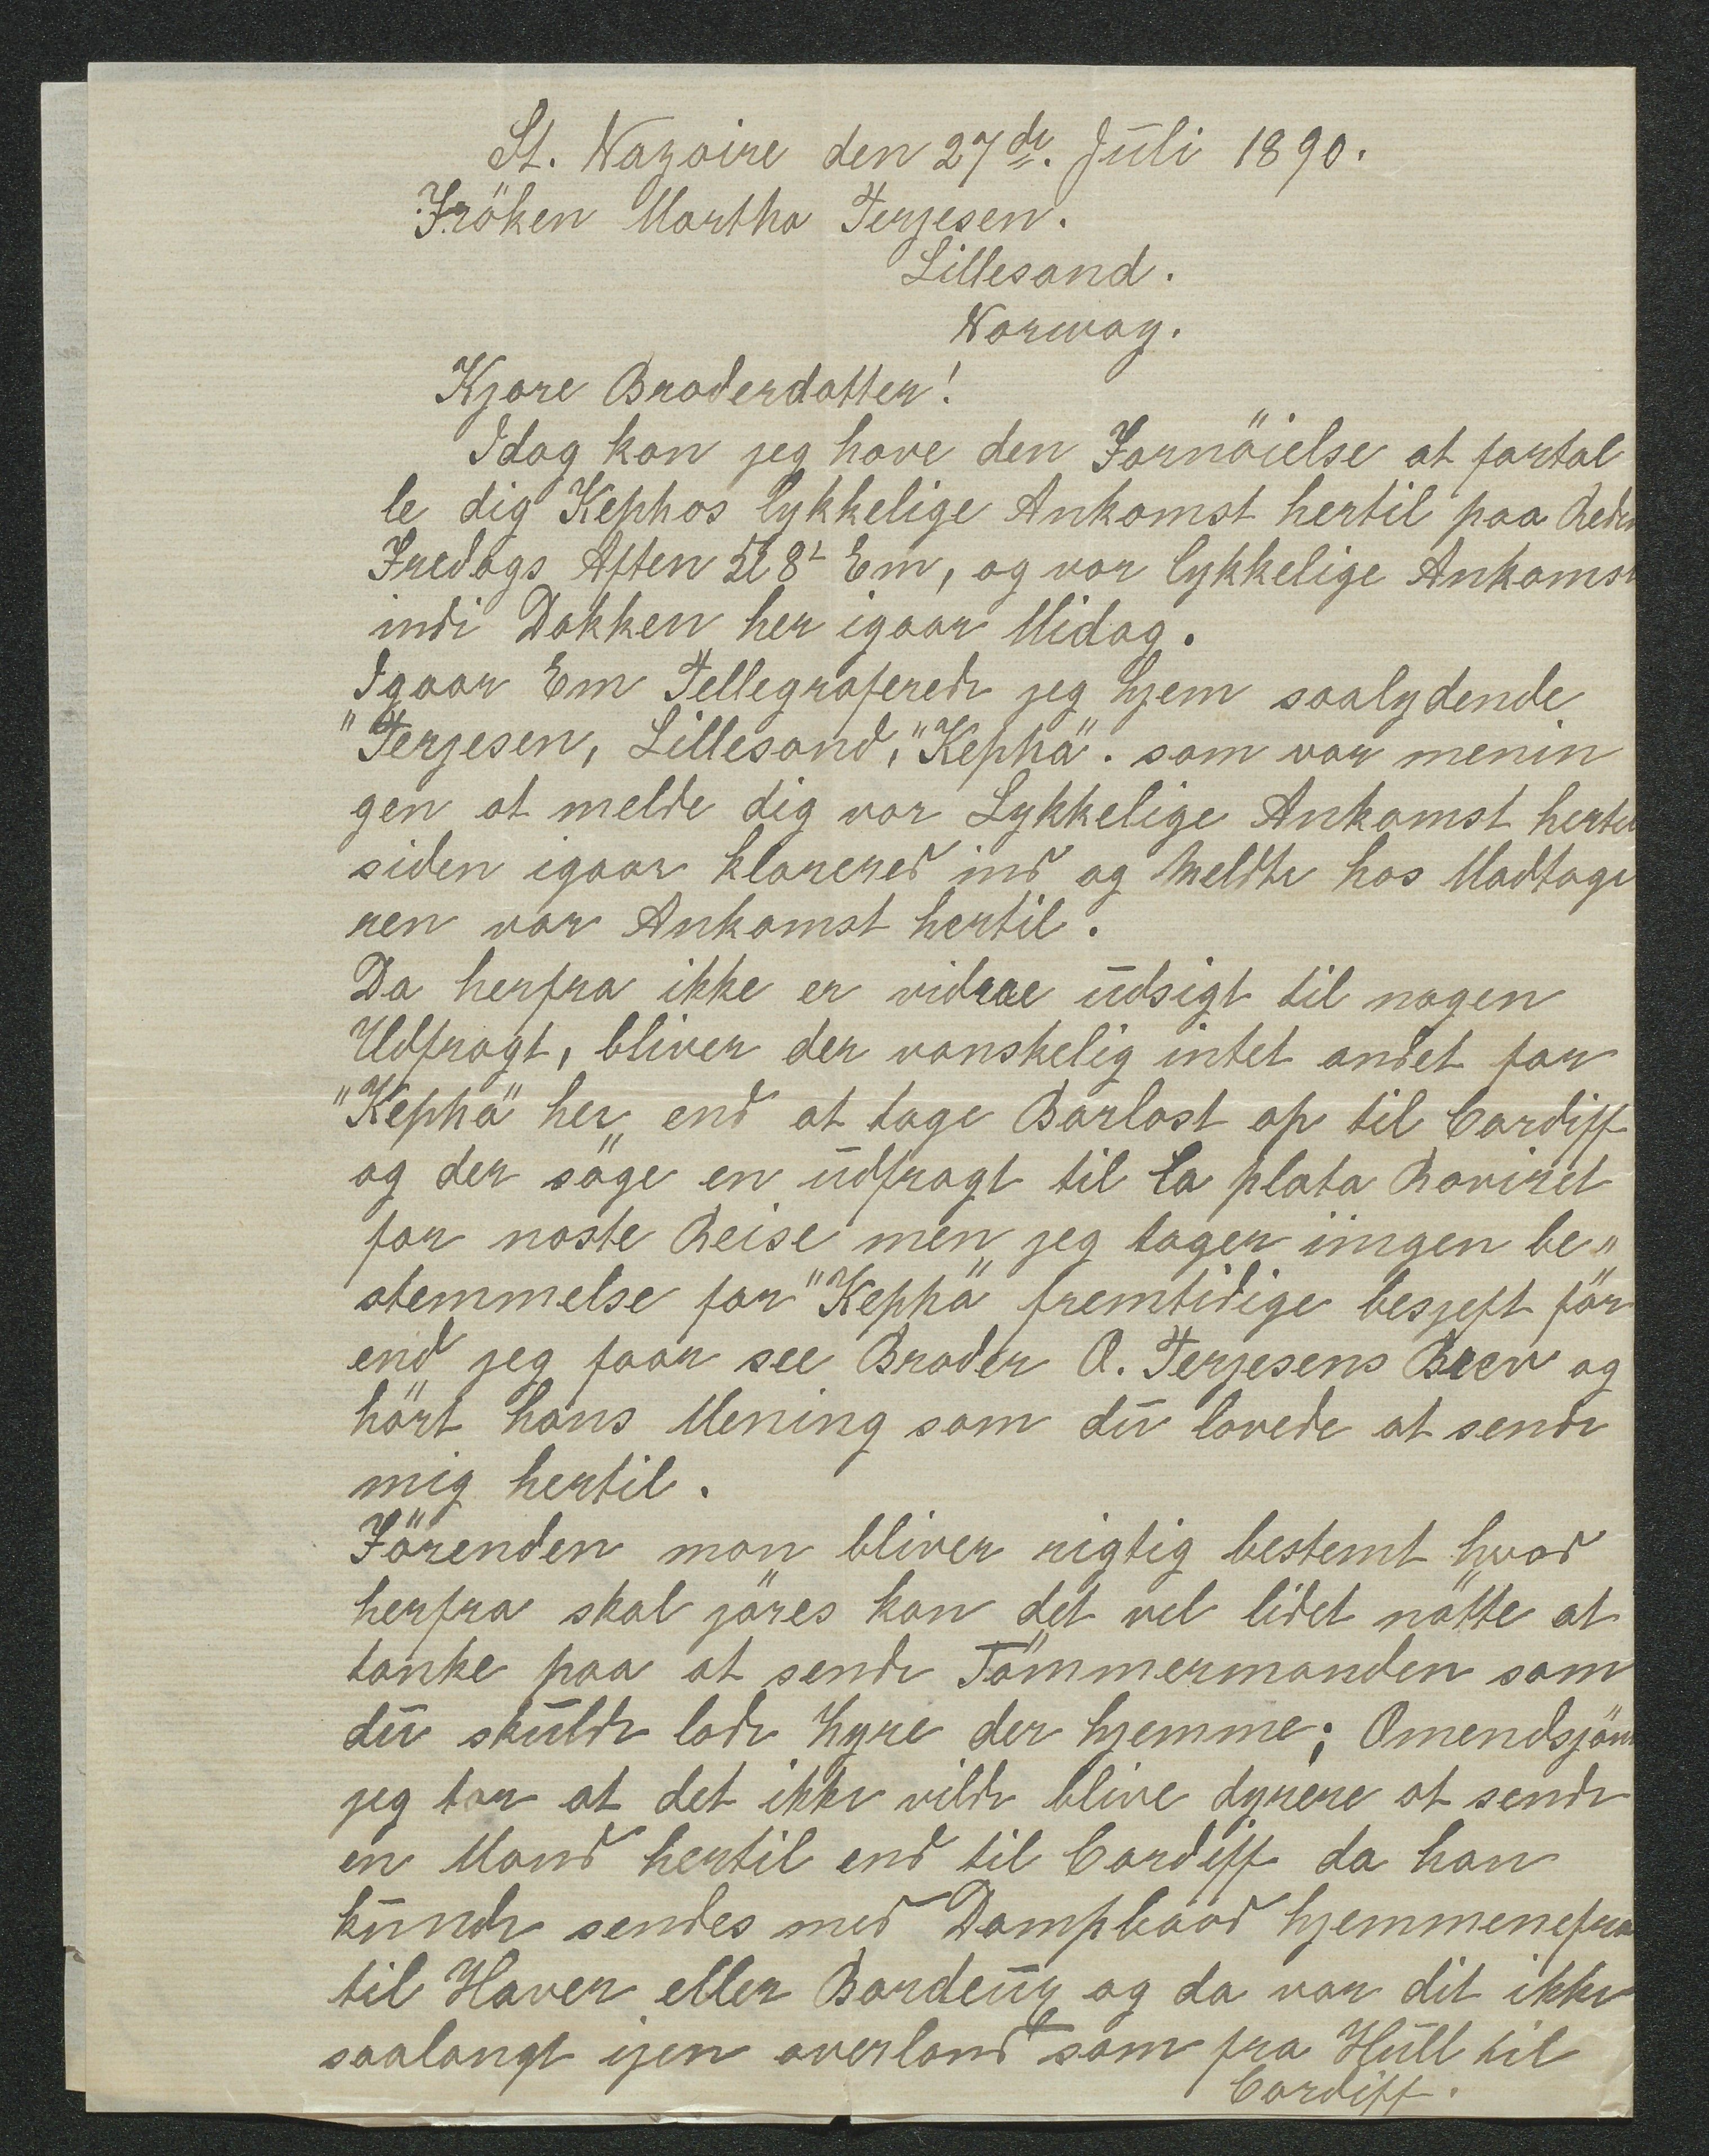 St. Nazaire den 27de. Juli 1890.
Fröken Martha Terjesen.
Lillesand.
Norway.
Kjære Broderdatter!
Idag kan jeg have den Fornöielse at fortæl
le dig Kephas lykkelige Ankomst hertil paa Reden
Fredags Aften Kl 8½ Em, og vor lykkelige Ankomst
indi Dokken her igaar Midag.
Igaar Em Tellegraferede jeg hjem saalydende
"Terjesen, Lillesand, "Kepha". som var menin
gen at melde dig vor Lykkelige Ankomst hertil
siden igaar klarered ind og Meldte hos Modtage
ren vor Ankomst hertil.
Da herfra ikke er vidrae udsigt til nogen
Udfragt, bliver der vanskelig intet andet for
"Kepha" her end at tage Barlast op til Cardiff
og der söge en udfragt til La plata Raviret
for næste Reise men jeg tager iingen be"
stemmelse for "Kepha" fremtidige besjeft för
end jeg faar see Broder O. Terjesens Brev og
hört hans Mening som du lovede at sende
mig hertil.
Förenden man bliver rigtig bestemt hvad
herfra skal jöres kan det vel lidet nötte at
tænke paa at sende Tömmermanden som
du skulde lade Hyre der hjemme; Omendsjönt
jeg tror at det ikke vilde blive dyrere at sende
en Mand hertil end til Cardiff da han
kunde sendes med Dampbaad hjemmenefra
til Haver eller Bordeux og da var dit ikke
saalangt ijen overland som fra Hull til
Cardiff.